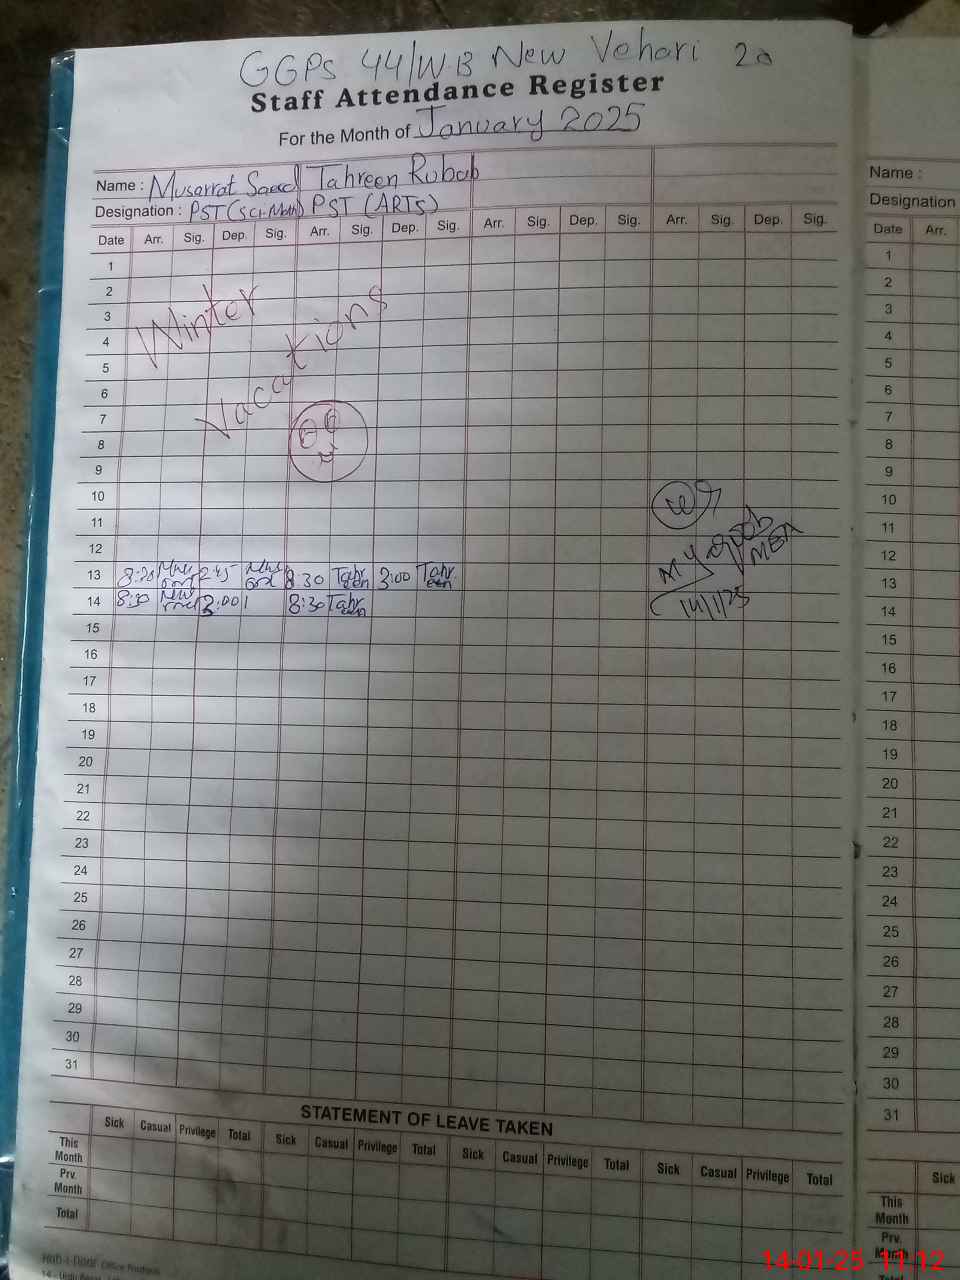 GGPS 44/W.B New Vehari 20
Staff Attendance Register
For the Month of January 2025
Name : Musarrat Saeed Tahreen Rubab
Designation : PST (Sci-Math) PST (ARTS)
Date Arr. Sig. Dep. Sig. Arr. Sig. Dep. Sig. Arr. Sig. Dep. Sig. Arr. Sig. Dep. Sig.
1
2
3
4
5
6
7
8
9
10
11
12
13 8:30 2:45 8:30 Tahreen 3:00 Tahreen
14 8:30 3:00 8:30 Tahreen
15
16
17
18
19
20
21
22
23
24
25
26
27
28
29
30
31
Winter
Vacations
M Yaqoob
MEA
14/1/25
STATEMENT OF LEAVE TAKEN
Sick Casual Privilege Total Sick Casual Privilege Total Sick Casual Privilege Total Sick Casual Privilege Total
This Month
Prv. Month
Total
Office Products
Name :
Designation
Date Arr.
1
2
3
4
5
6
7
8
9
10
11
12
13
14
15
16
17
18
19
20
21
22
23
24
25
26
27
28
29
30
31
Sick
This Month
Prv. Month
Total
14-01-25 11:12